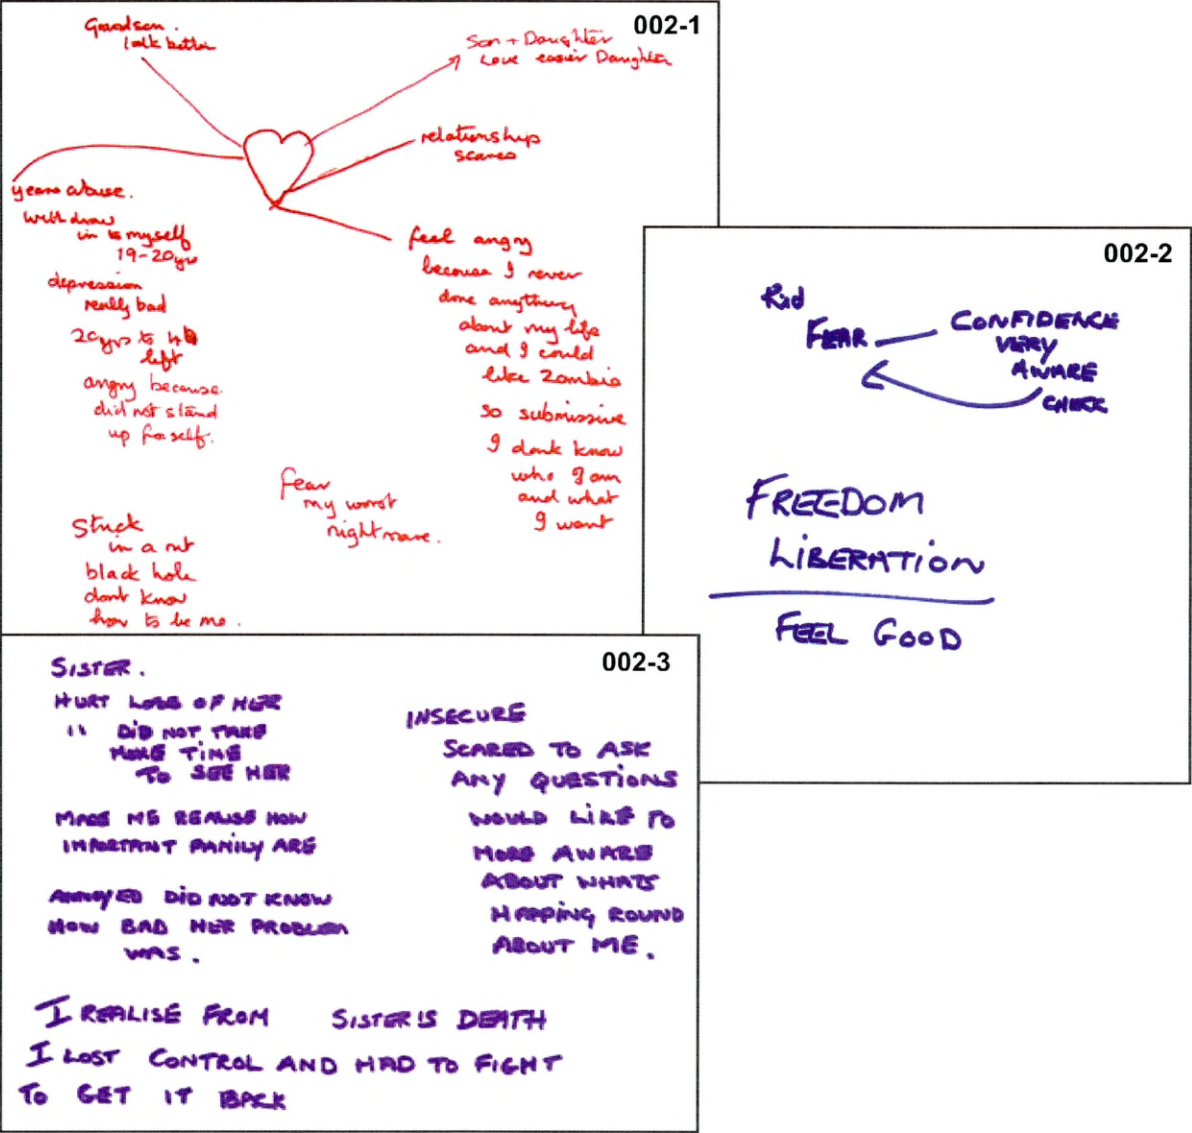 002-1
Grandson.
talk better
Son + Daughter
Love easier Daughter
relationship
scares
years abuse.
withdraw
in to myself
19-20yrs
depression
really bad
20yrs to
left
angry because.
did not stand
up for self.
Stuck
in a rut
black hole
dont know
how to be me.
fear
my worst
nightmare.
feel angry
because I never
done anything
about my life
and I could
like Zombie
so submissive
I dont know
who I am
and what
I want
002-2
Rid
FEAR
CONFIDENCE
VERY
AWARE
CHECK
FREEDOM
LIBERATION
FEEL GOOD
002-3
SISTER.
HURT LOSS OF HER
" DID NOT TAKE
MORE TIME
TO SEE HER
MADE ME REALISE HOW
IMPORTANT FAMILY ARE
ANNOYED DID NOT KNOW
HOW BAD HER PROBLEM
WAS.
INSECURE
SCARED TO ASK
ANY QUESTIONS
WOULD LIKE TO
MORE AWARE
ABOUT WHATS
HAPPING ROUND
ABOUT ME.
I REALISE FROM SISTER'S DEATH
I LOST CONTROL AND HAD TO FIGHT
TO GET IT BACK